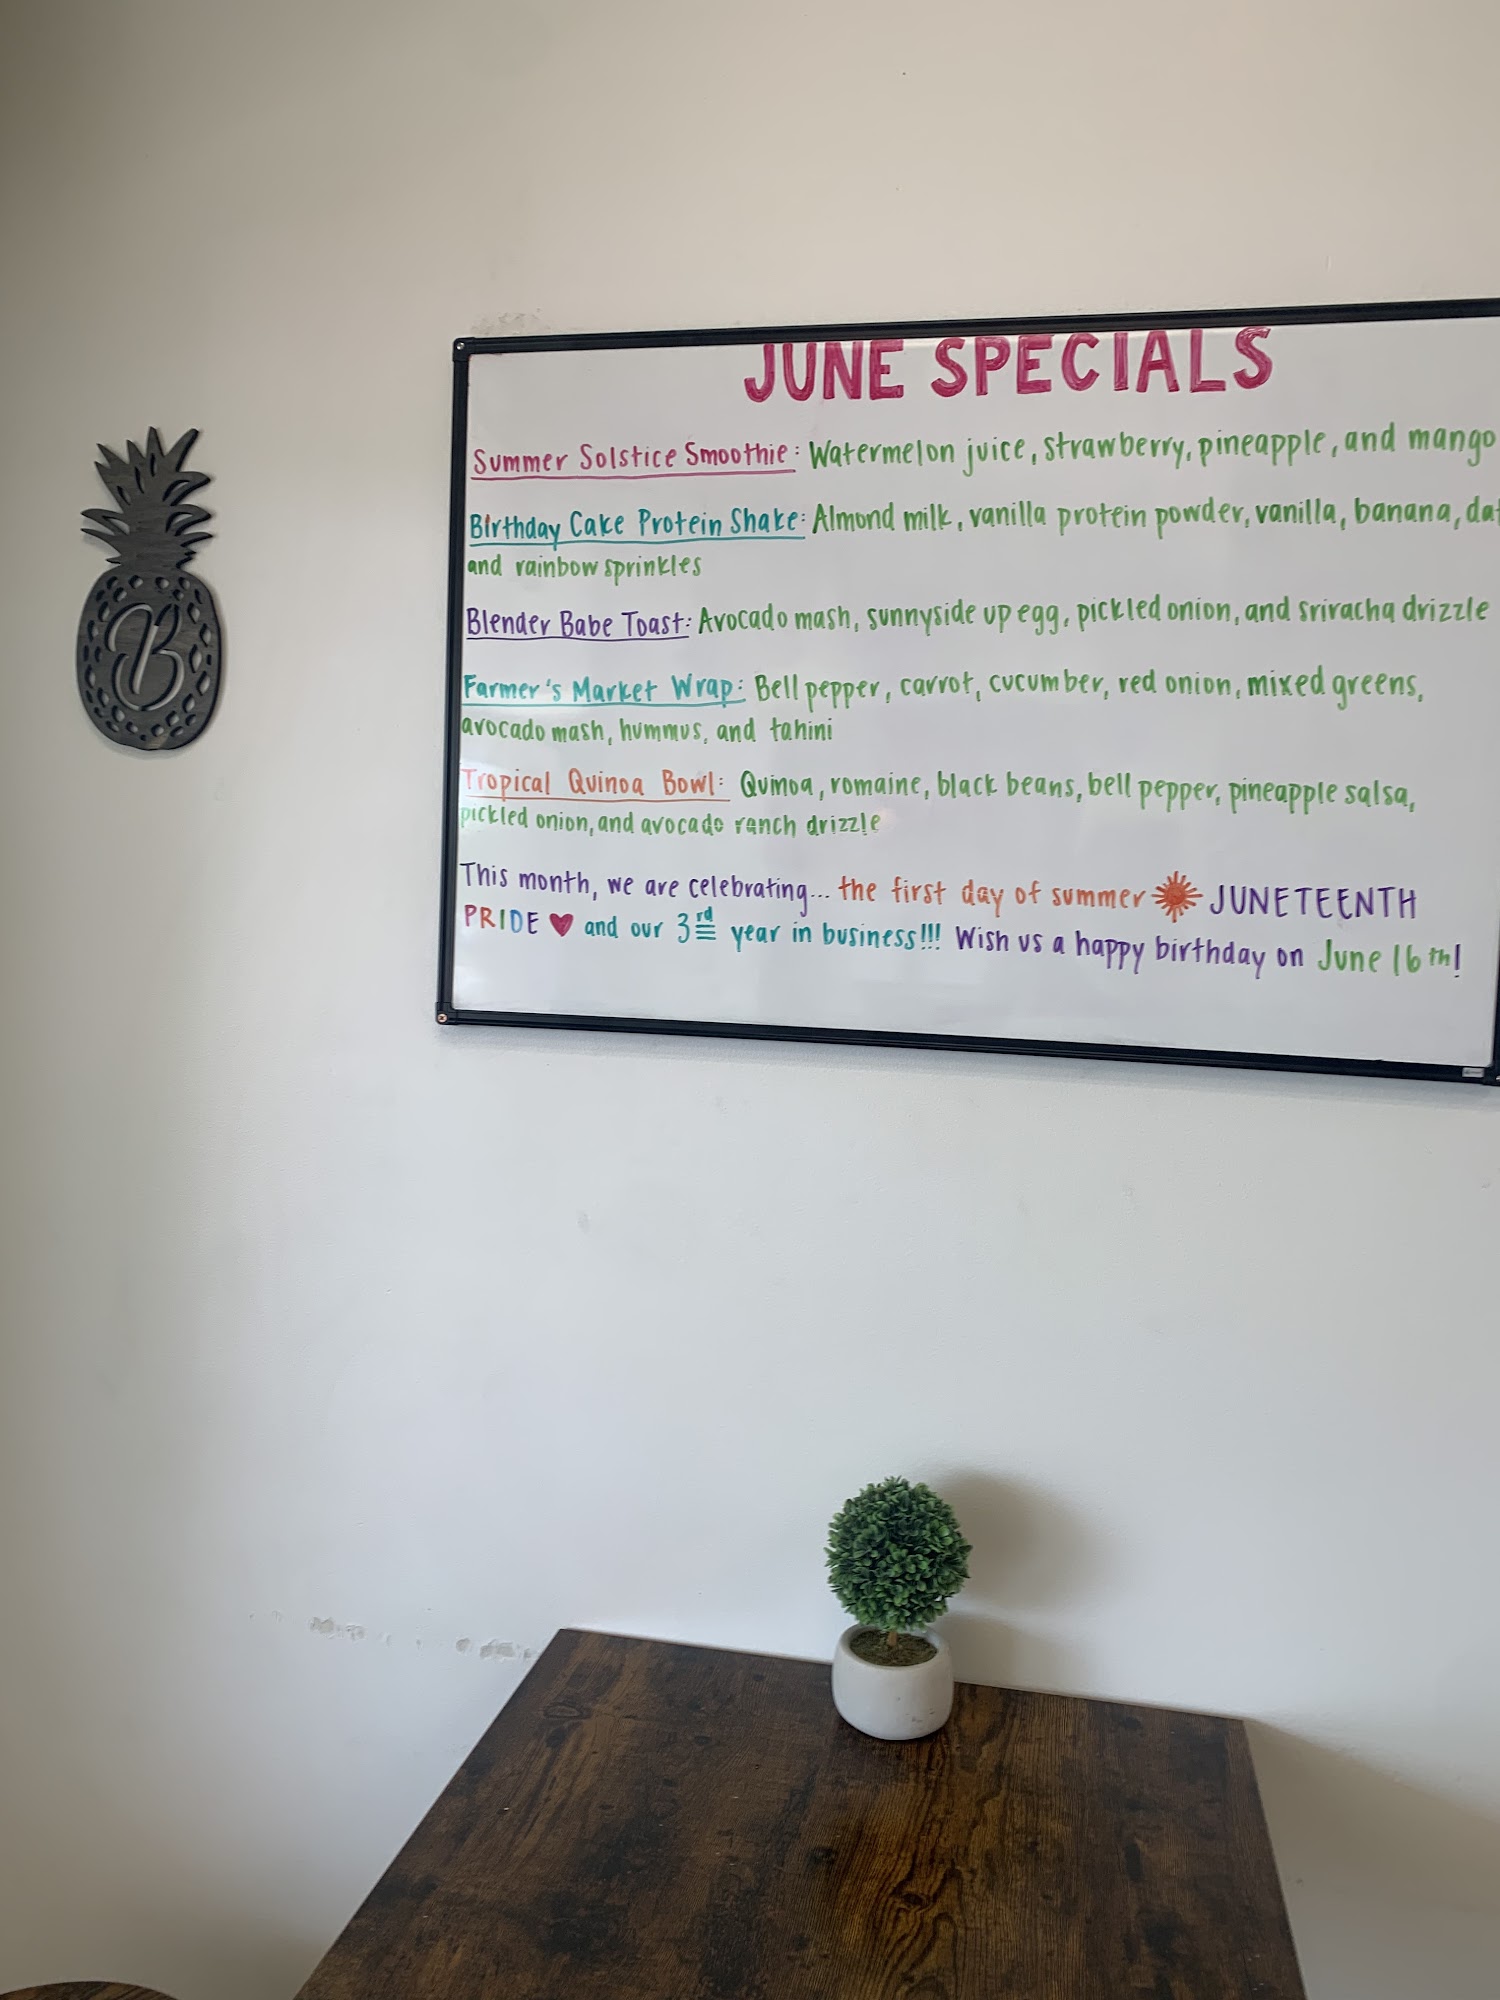 JUNE SPECIALS
Summer Solstice Smoothie: Watermelon juice, strawberry, pineapple, and mango
Birthday Cake Protein Shake: Almond milk, vanilla protein powder, vanilla, banana,
and rainbow sprinkles
Blender Babe Toast: Avocado mash, sunnyside up egg, pickled onion, and sriracha drizzle
Farmer's Market Wrap: Bell pepper, carrot, cucumber, red onion, mixed greens,
avocado mash, hummus, and tahini
Tropical Quinoa Bowl: Quinoa, romaine, black beans, bell pepper, pineapple salsa,
pickled onion, and avocado ranch drizzle
This month, we are celebrating... the first day of summer JUNETEENTH
PRIDE ♥ and our 3rd year in business!!! Wish us a happy birthday on June 16th!
B